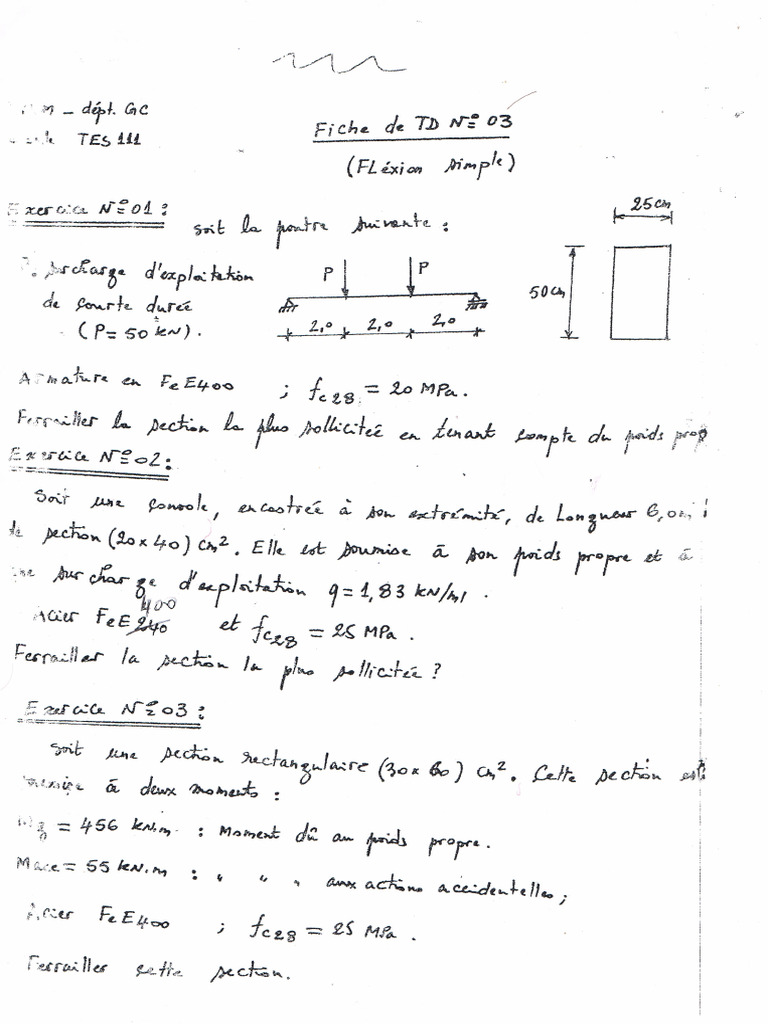 dépt. GC
TES 111
Fiche de TD N° 03
(FLéxion simple)
Exercice N° 01 : soit la poutre suivante :
25cm
P. surcharge d'exploitation
de courte durée
(P = 50 kN).
P P
2,0 2,0 2,0
50cm
Armature en FeE400 ; fc28 = 20 MPa.
Ferrailler la section la plus sollicitée en tenant compte du poids prop
Exercice N° 02 :
Soit une console, encastrée à son extrémité, de Longueur 6,0m
de section (20 x 40) cm². Elle est soumise à son poids propre et à
une surcharge d'exploitation q = 1,83 kN/ml.
400
Acier FeE240 et fc28 = 25 MPa.
Ferrailler la section la plus sollicitée ?
Exercice N° 03 :
Soit une section rectangulaire (30 x 60) cm². Cette section est
soumise à deux moments :
Mg = 456 kN.m : Moment dû au poids propre.
Macc = 55 kN.m : " " " aux actions accidentelles ;
Acier FeE400 ; fc28 = 25 MPa.
Ferrailler cette section.